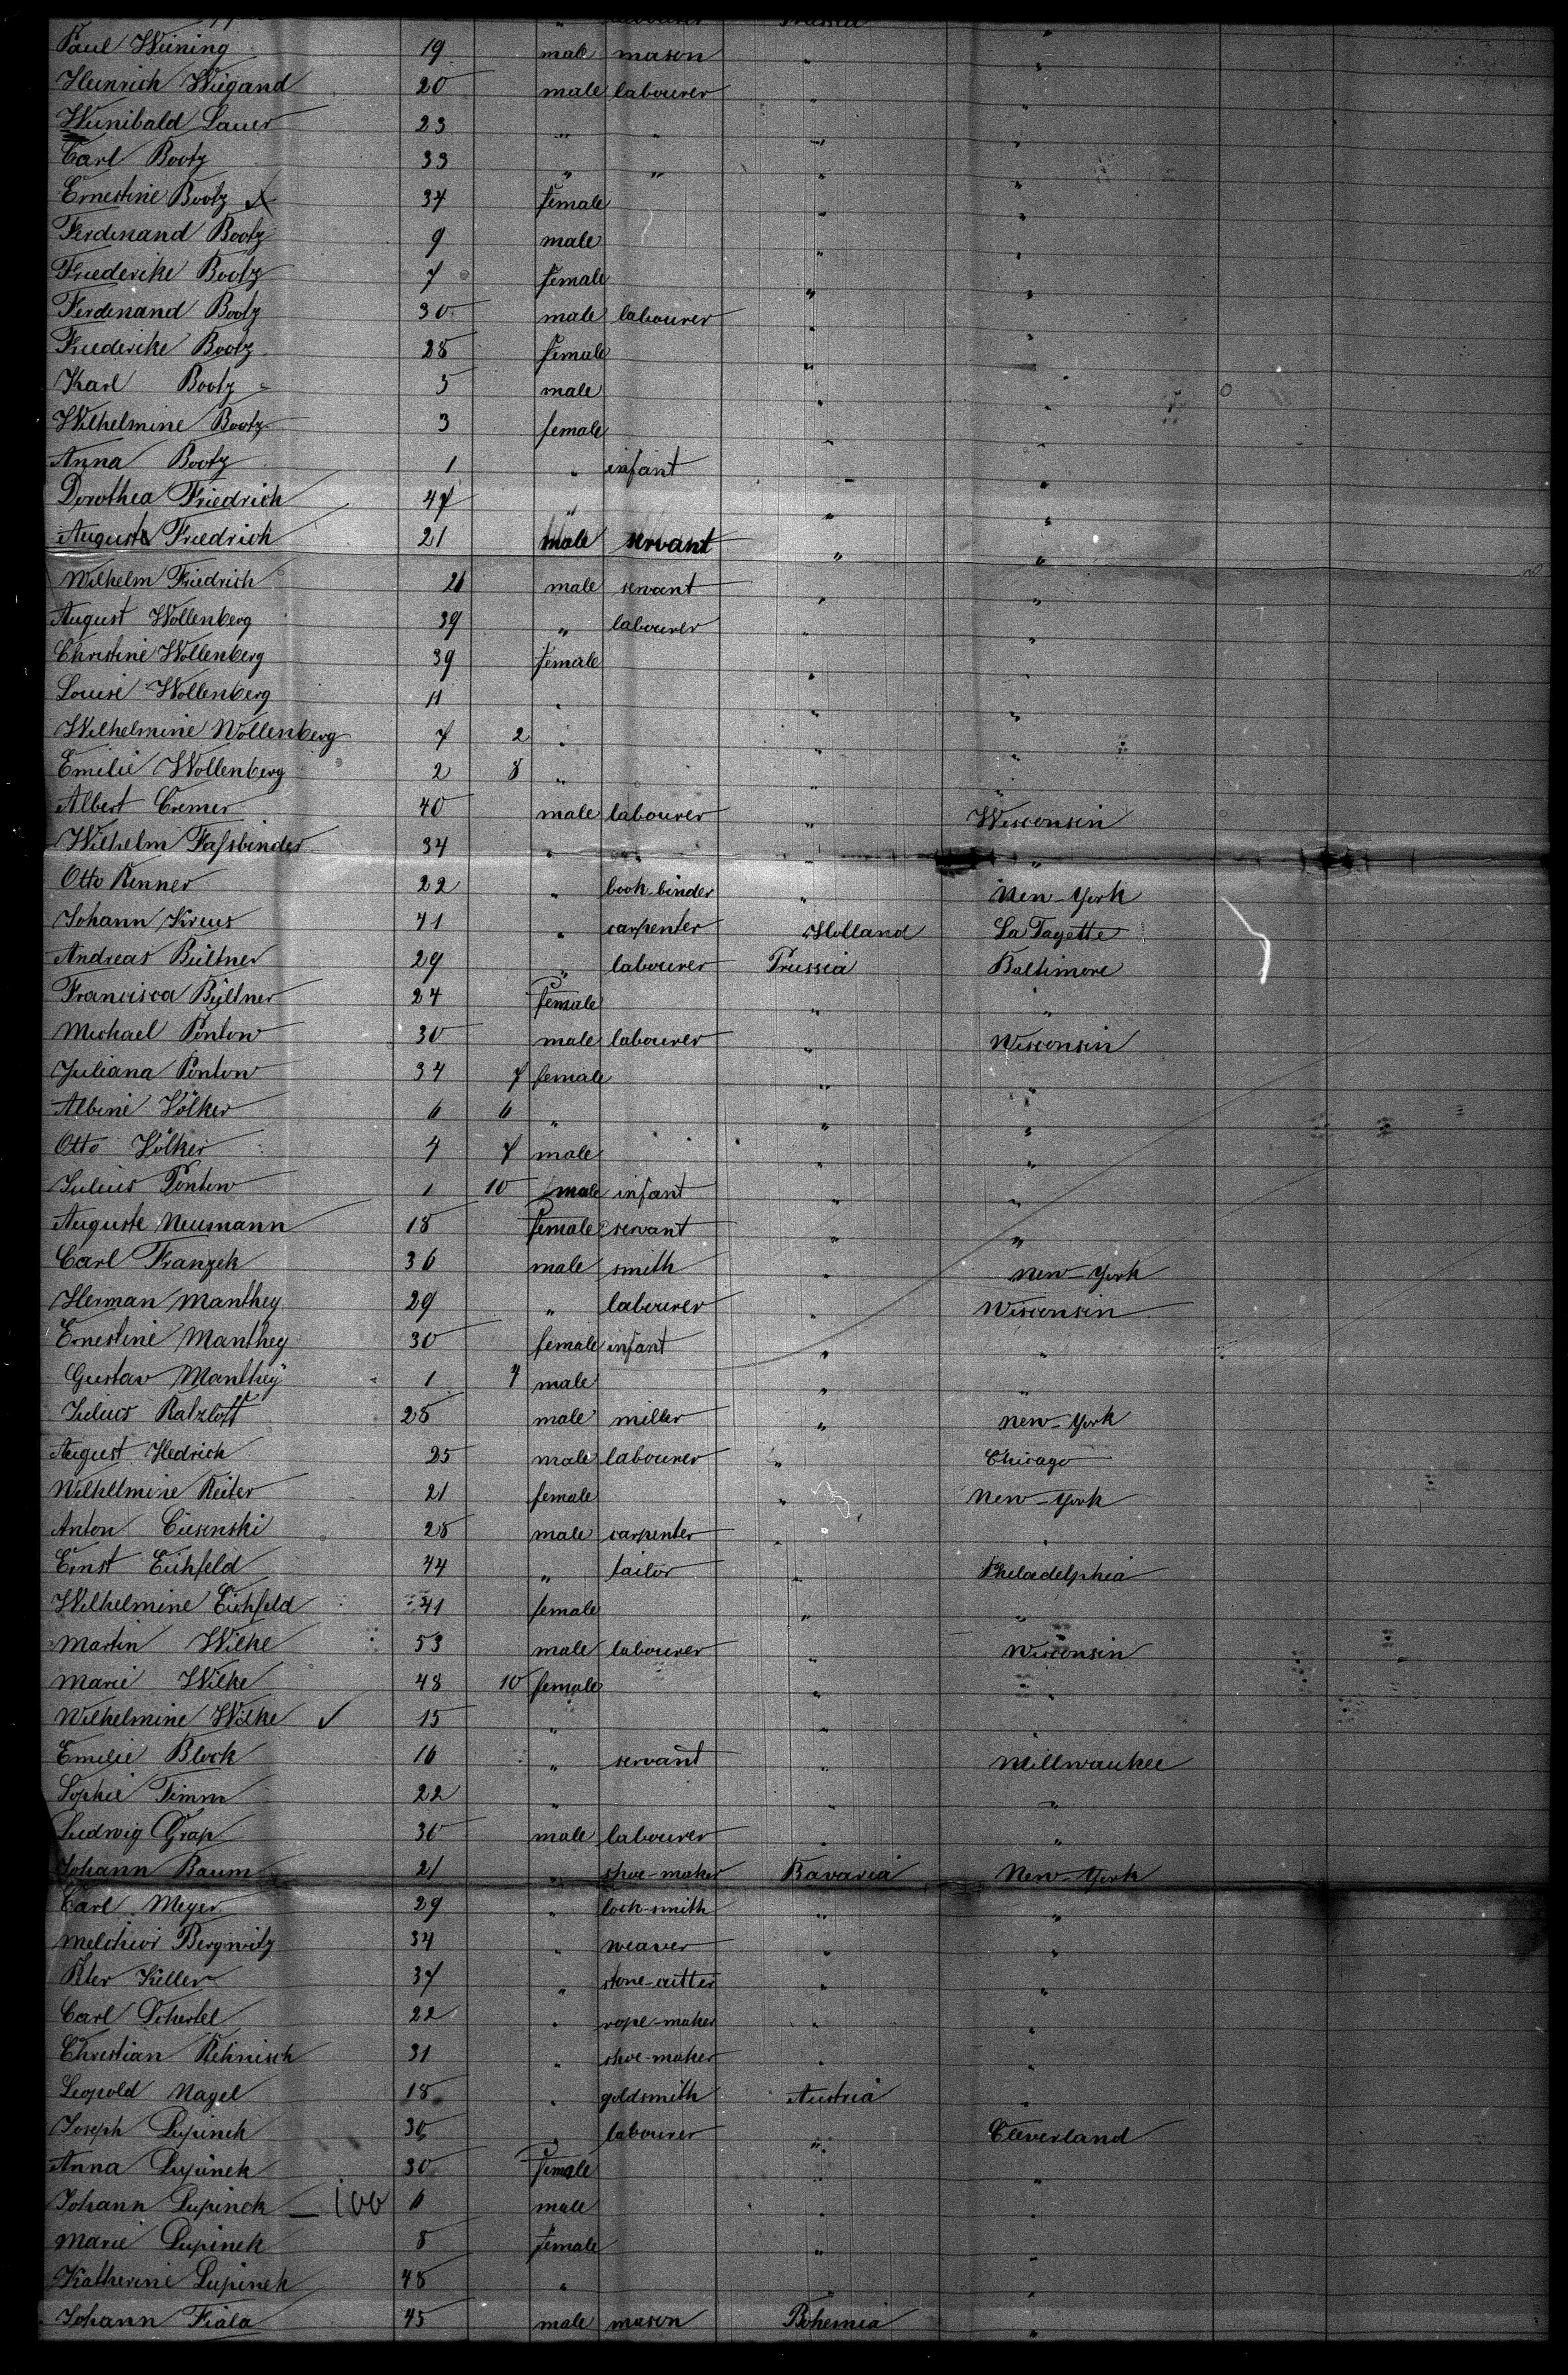 Paul Weining 19 male mason " "
Heinrich Wiegand 20 male labourer " "
Wunibald Lauer 23 " " " "
Carl Bootz 33 " " " "
Ernestine Bootz 34 female " "
Ferdinand Bootz 9 male " "
Friederike Bootz 7 female " "
Ferdinand Bootz 30 male labourer " "
Friederike Bootz 28 female " "
Karl Bootz 5 male " "
Wilhelmine Bootz 3 female " "
Anna Bootz 1 " infant " "
Dorothea Friedrich 47 " " "
Auguste Friedrich 21 male servant " "
Wilhelm Friedrich 21 male servant " "
August Wollenberg 39 " labourer " "
Christine Wollenberg 39 female " "
Louise Wollenberg 11 " " "
Wilhelmine Wollenberg 7 2 " " "
Emilie Wollenberg 2 8 " " "
Albert Cremer 40 male labourer " Wisconsin
Wilhelm Fassbinder 34 " " " "
Otto Renner 22 " book-binder " New-York
Johann Kreus 41 " carpenter Holland La Fayette
Andreas Bültner 29 " labourer Prussia Baltimore
Francisca Bültner 24 female " "
Michael Ponton 30 male labourer " Wisconsin
Juliana Ponton 34 7 female " "
Albine Völker 6 6 " " "
Otto Völker 4 7 male " "
Julius Ponton 1 10 male infant " "
Auguste Neumann 18 female servant " "
Carl Franzek 36 male smith " New-York
Herman Manthey 29 " labourer " Wisconsin
Ernestine Manthey 30 female infant " "
Gustav Manthey 1 4 male " "
Julius Ratzloff 28 male miller " New-York
August Hedrich 25 male labourer " Chicago
Wilhelmine Reiter 21 female " New-York
Anton Ciesenski 28 male carpenter " "
Ernst Eichfeld 44 " tailor " Philadelphia
Wilhelmine Eichfeld 41 female " "
Martin Wilke 53 male labourer " Wisconsin
Marie Wilke 48 10 female " "
Wilhelmine Wilke ✓ 15 " " "
Emilie Block 16 " servant " Millwaukee
Sophie Timm 22 " " "
Ludwig Grap 36 male labourer " "
Johann Baum 21 " shoe-maker Bavaria New-York
Carl Meyer 29 " lock-smith " "
Melchior Bergwitz 34 " weaver " "
Peter Killer 37 " stone-cutter " "
Carl Schertel 22 " rope-maker " "
Christian Rehnisch 31 " shoe-maker " "
Leopold Nagel 18 " goldsmith Austria "
Joseph Lupinek 30 " labourer " Cleverland
Anna Lupinek 30 female " "
Johann Lupinek — 100 6 male " "
Marie Lupinek 8 female " "
Katherine Lupinek 48 " " "
Johann Fiala 45 male mason Bohemia "